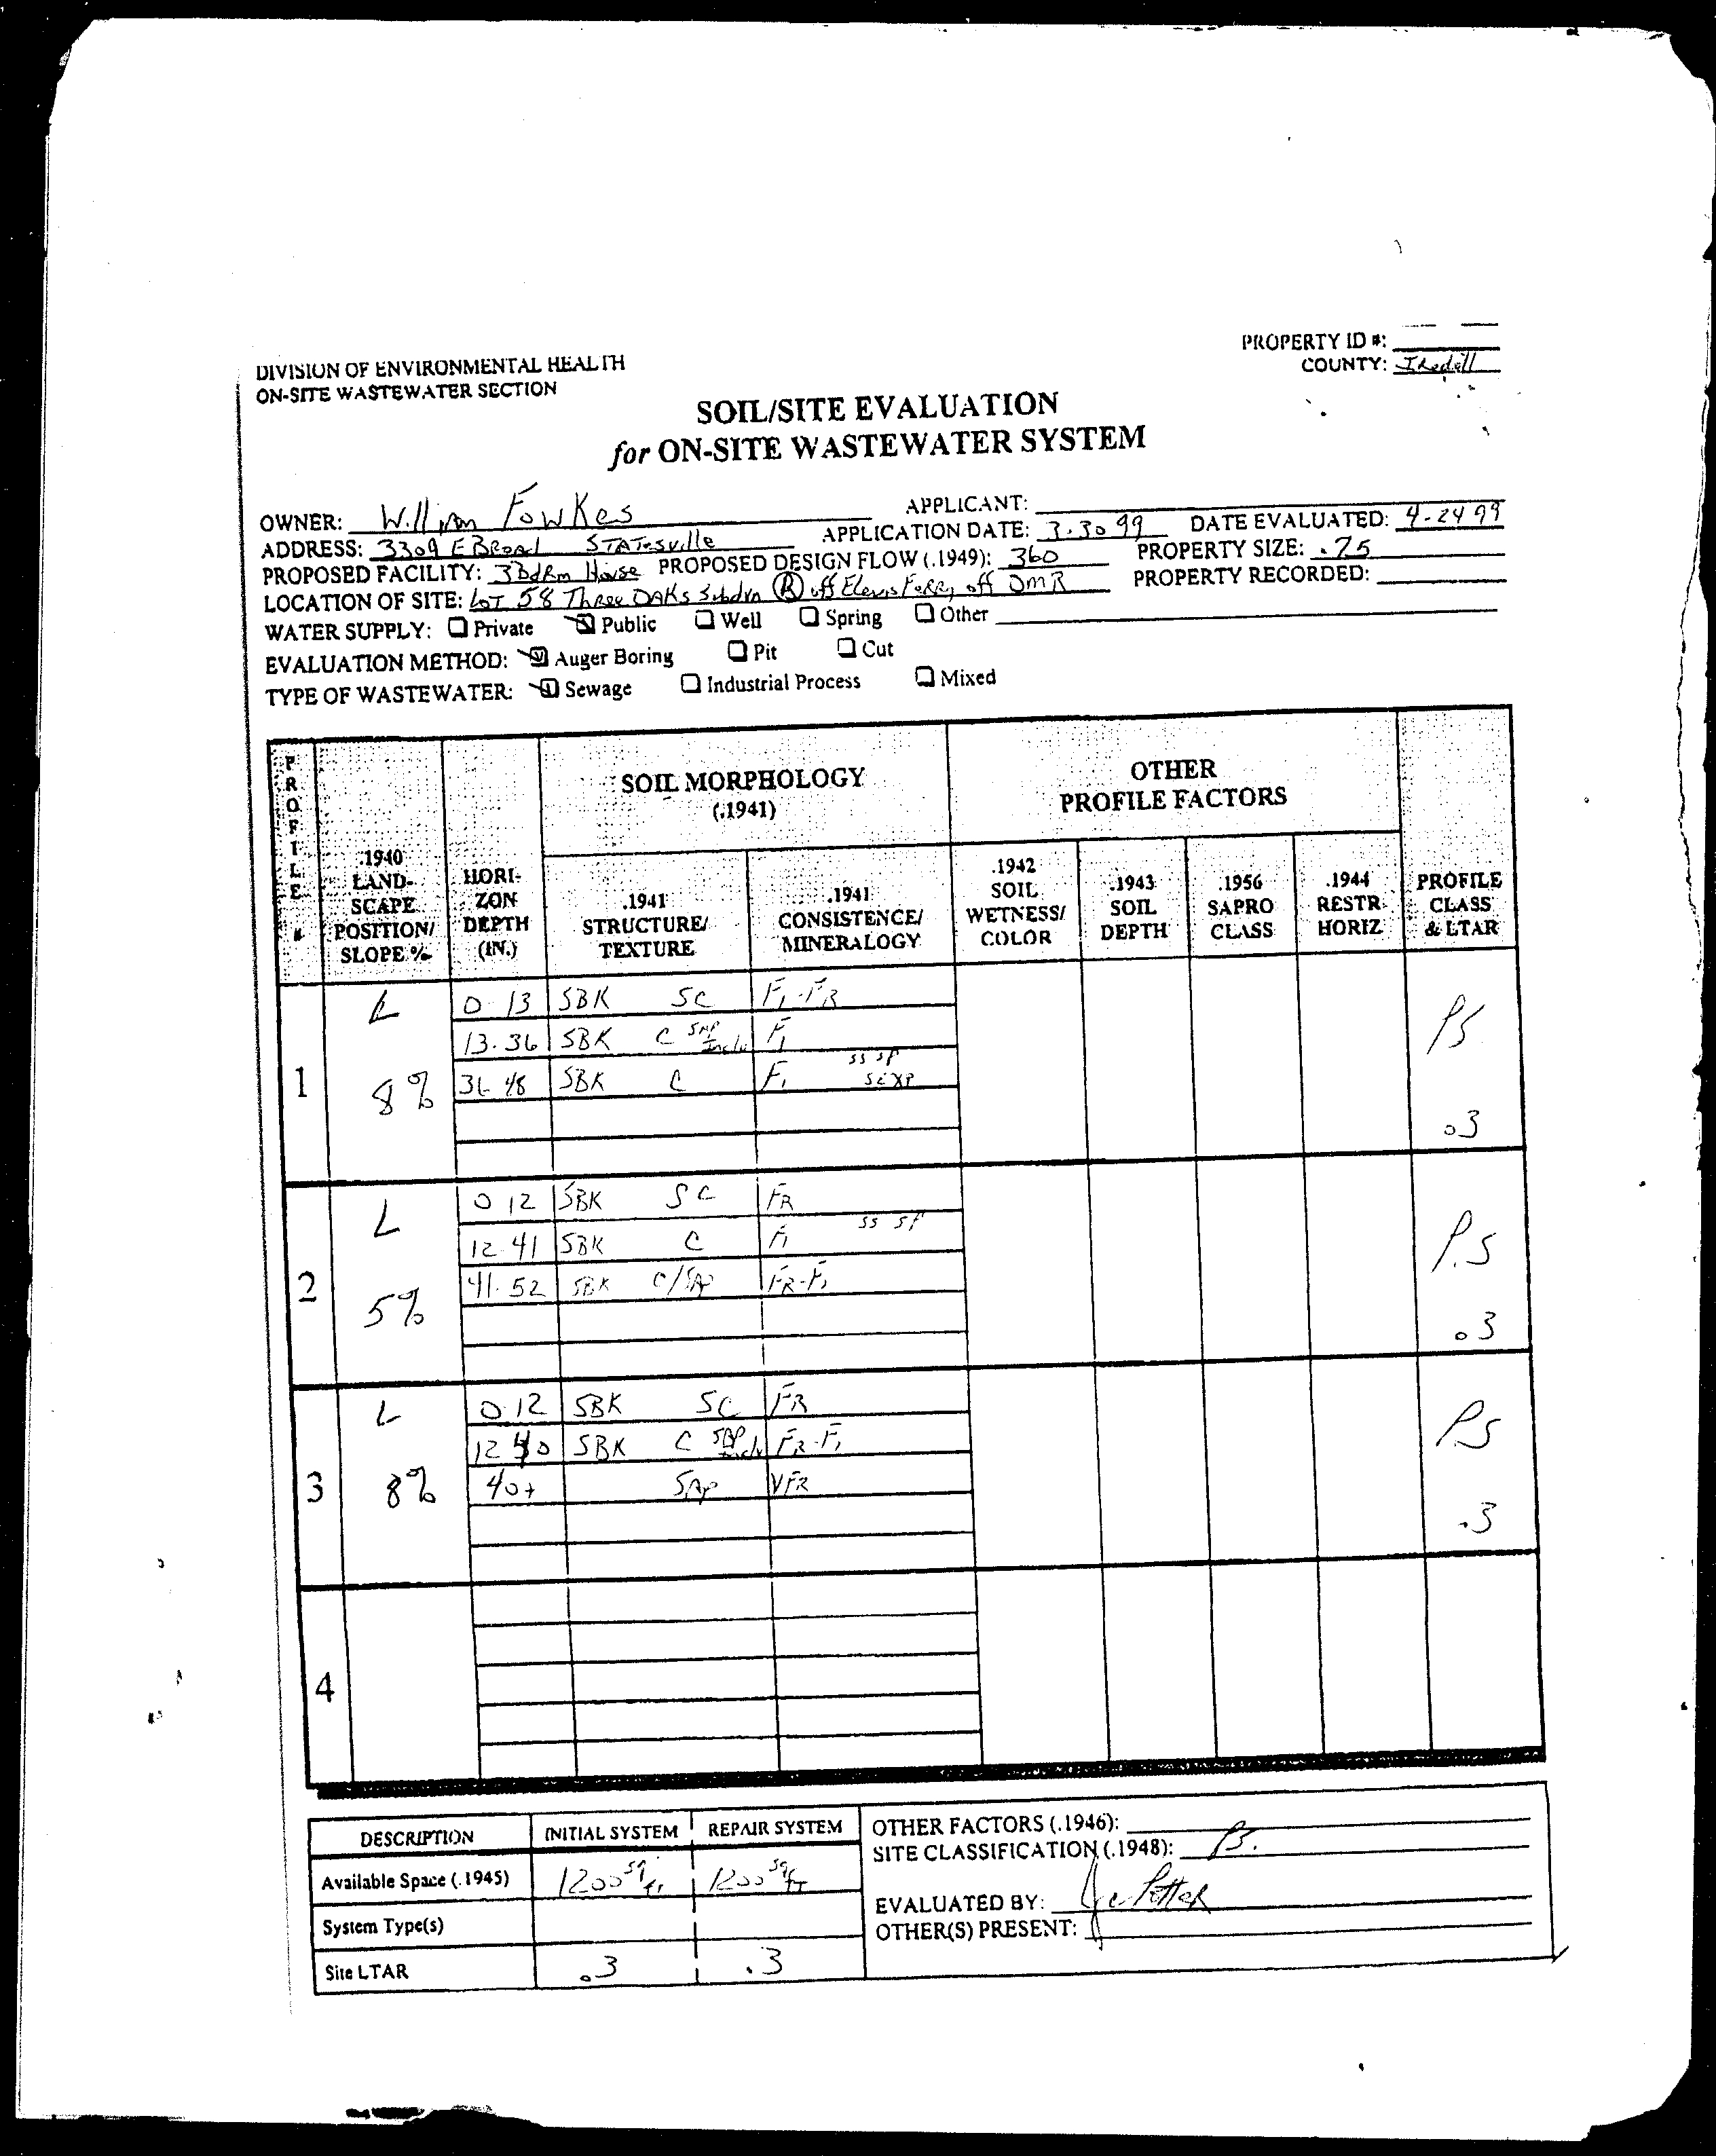 PROPERTY ID #:
DIVISION OF ENVIRONMENTAL HEALTH
COUNTY: Iredell
ON-SITE WASTEWATER SECTION
SOIL/SITE EVALUATION
for ON-SITE WASTEWATER SYSTEM
OWNER: William Fowkes APPLICANT:
ADDRESS: 3309 E Broad Statesville APPLICATION DATE: 3.30 99 DATE EVALUATED: 4-24 99
PROPOSED FACILITY: 3 BdRm House PROPOSED DESIGN FLOW (.1949): 360 PROPERTY SIZE: .75
LOCATION OF SITE: Lot 58 Three Oaks Subdvn (R) off Ferry off OMR PROPERTY RECORDED:
WATER SUPPLY: Private Public Well Spring Other
EVALUATION METHOD: Auger Boring Pit Cut
TYPE OF WASTEWATER: Sewage Industrial Process Mixed
PROFILE #
.1940 LAND-SCAPE POSITION/ SLOPE %
HORI-ZON DEPTH (IN.)
SOIL MORPHOLOGY (.1941)
.1941 STRUCTURE/ TEXTURE
.1941 CONSISTENCE/ MINERALOGY
OTHER PROFILE FACTORS
.1942 SOIL WETNESS/ COLOR
.1943 SOIL DEPTH
.1956 SAPRO CLASS
.1944 RESTR HORIZ
PROFILE CLASS & LTAR
1 L 8%
0 13 SBK SC Fi-FR
13-36 SBK C SAP Inclu Fi
36 48 SBK C Fi SS SP SEXP
PS .3
2 L 5%
0 12 SBK SC FR
12-41 SBK C Fi SS SP
41-52 SBK C/SAP FR-Fi
P.S .3
3 L 8%
0-12 SBK SC FR
12 40 SBK C SAP Inclu FR-Fi
40+ SAP VFR
PS .3
4
DESCRIPTION INITIAL SYSTEM REPAIR SYSTEM
Available Space (.1945) 1200 sq ft 1200 sq ft
System Type(s)
Site LTAR .3 .3
OTHER FACTORS (.1946):
SITE CLASSIFICATION (.1948): PS.
EVALUATED BY: Joe Potter
OTHER(S) PRESENT: